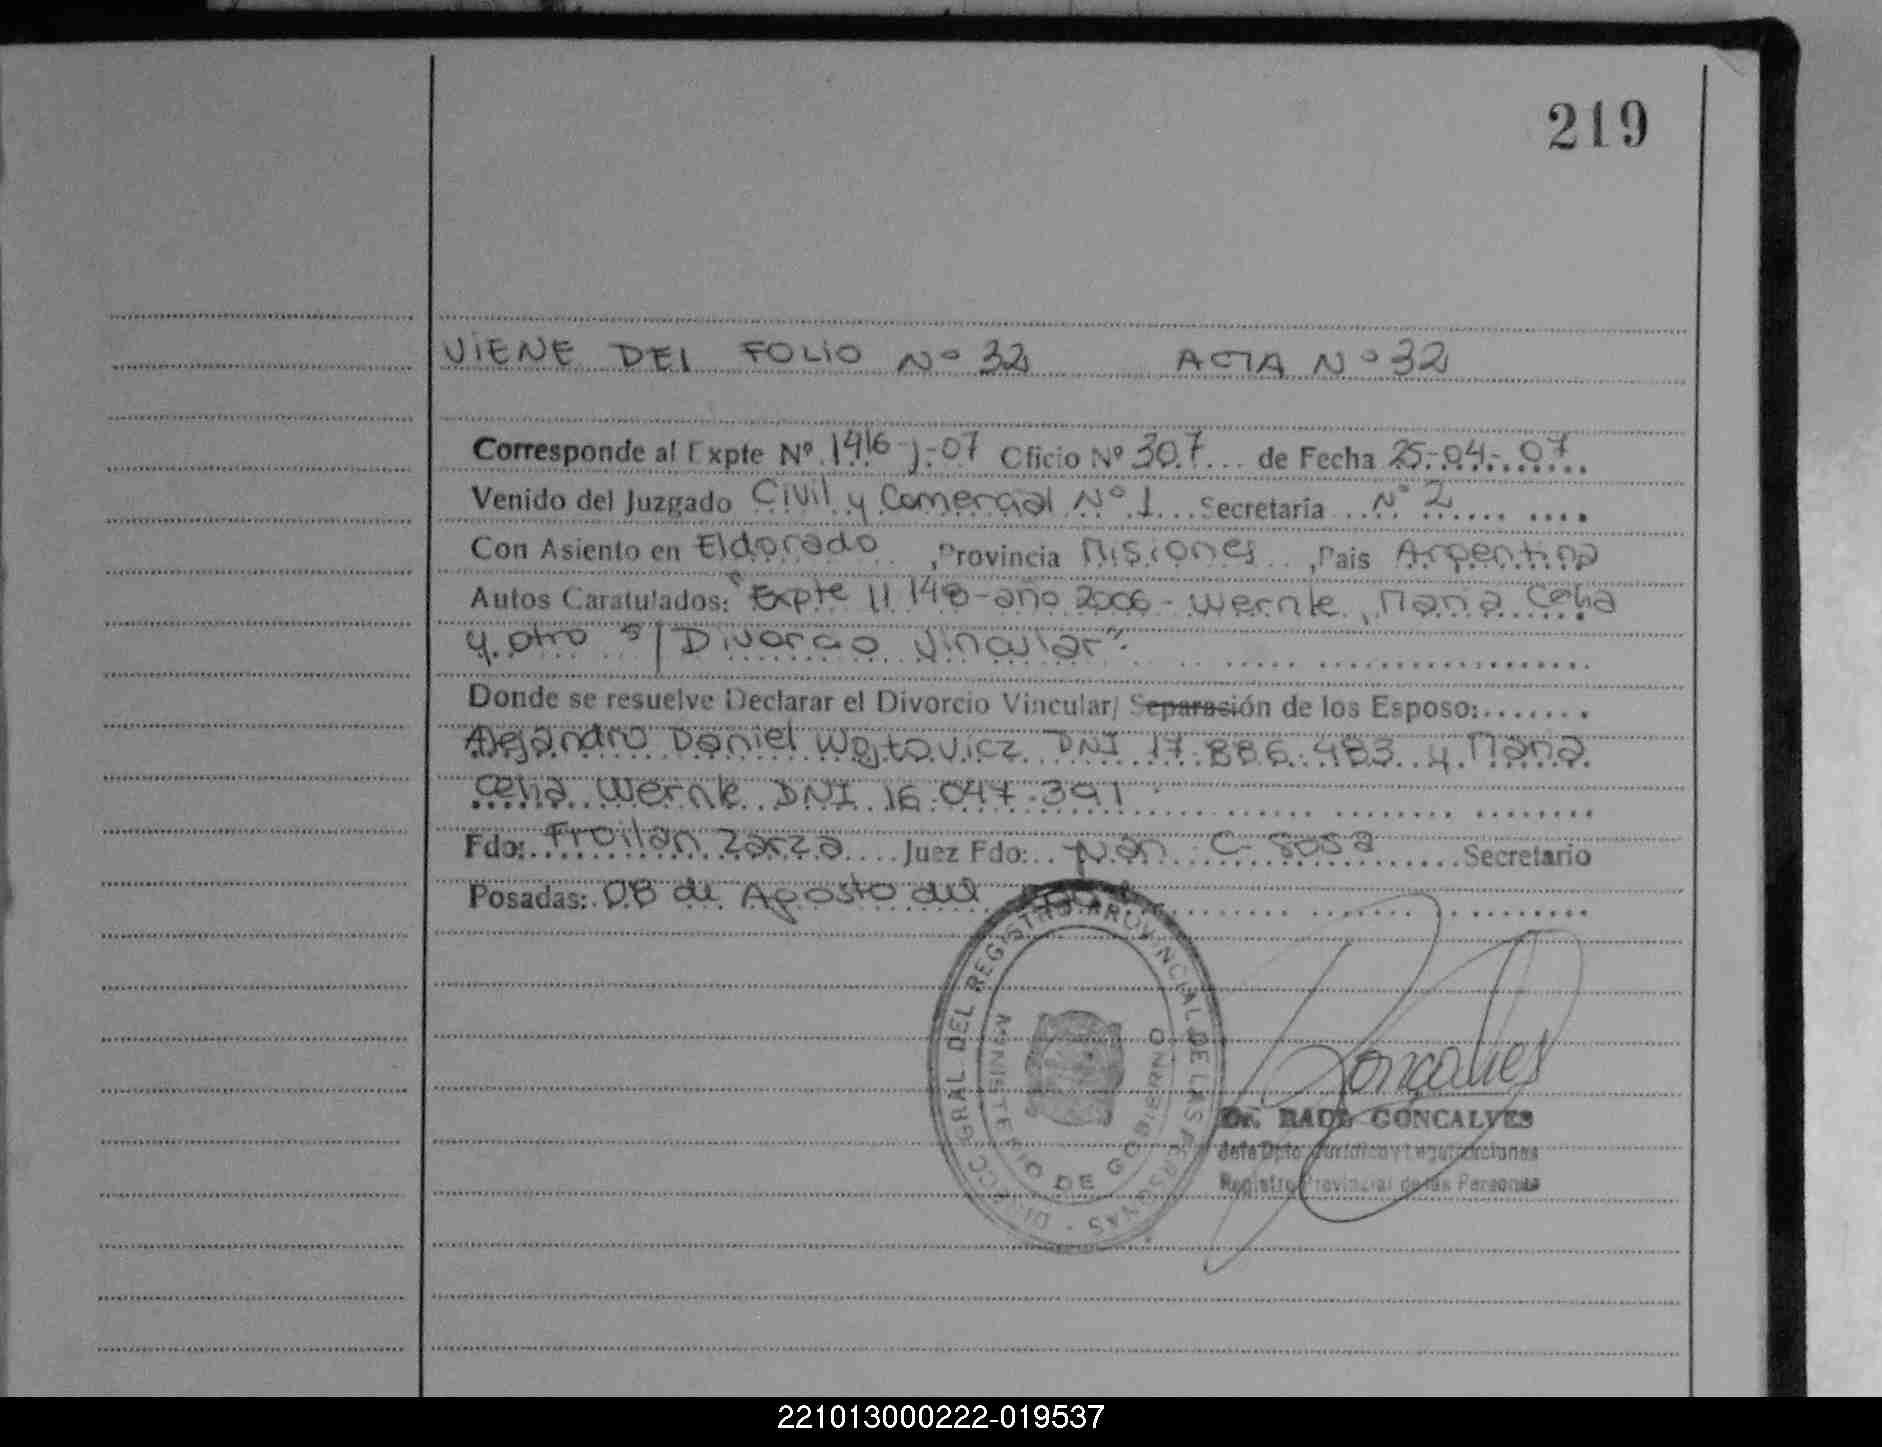 219
VIENE DEL FOLIO Nº 32 ACTA Nº 32
Corresponde al Expte Nº 1416-J-07 Oficio Nº 307... de Fecha 25-04-07
Venido del Juzgado Civil y Comercial Nº 1... Secretaría... Nº 2
Con Asiento en Eldorado, Provincia Misiones..., País Argentina
Autos Caratulados: "Expte 11.148-año 2006- Wernle, Maria Celia
y otro s/ Divorcio Vincular".
Donde se resuelve Declarar el Divorcio Vincular/ Separasión de los Esposo:.......
Alejandro Daniel Wojtovicz DNI 17.886.483 y Maria
Celia Wernle DNI 16.047.391
Fdo: Froilan Zarza.... Juez Fdo:.. Juan C. Sosa.... Secretario
Posadas: 08 de Agosto del
DIRECC. GRAL. DEL REGISTRO PROVINCIAL DE LAS PERSONAS
MINISTERIO DE GOBIERNO
Gonçalves
Dr. RAUL GONCALVES
Jefe Dpto. Jurídico y Legalizaciones
Registro Provincial de las Personas
221013000222-019537